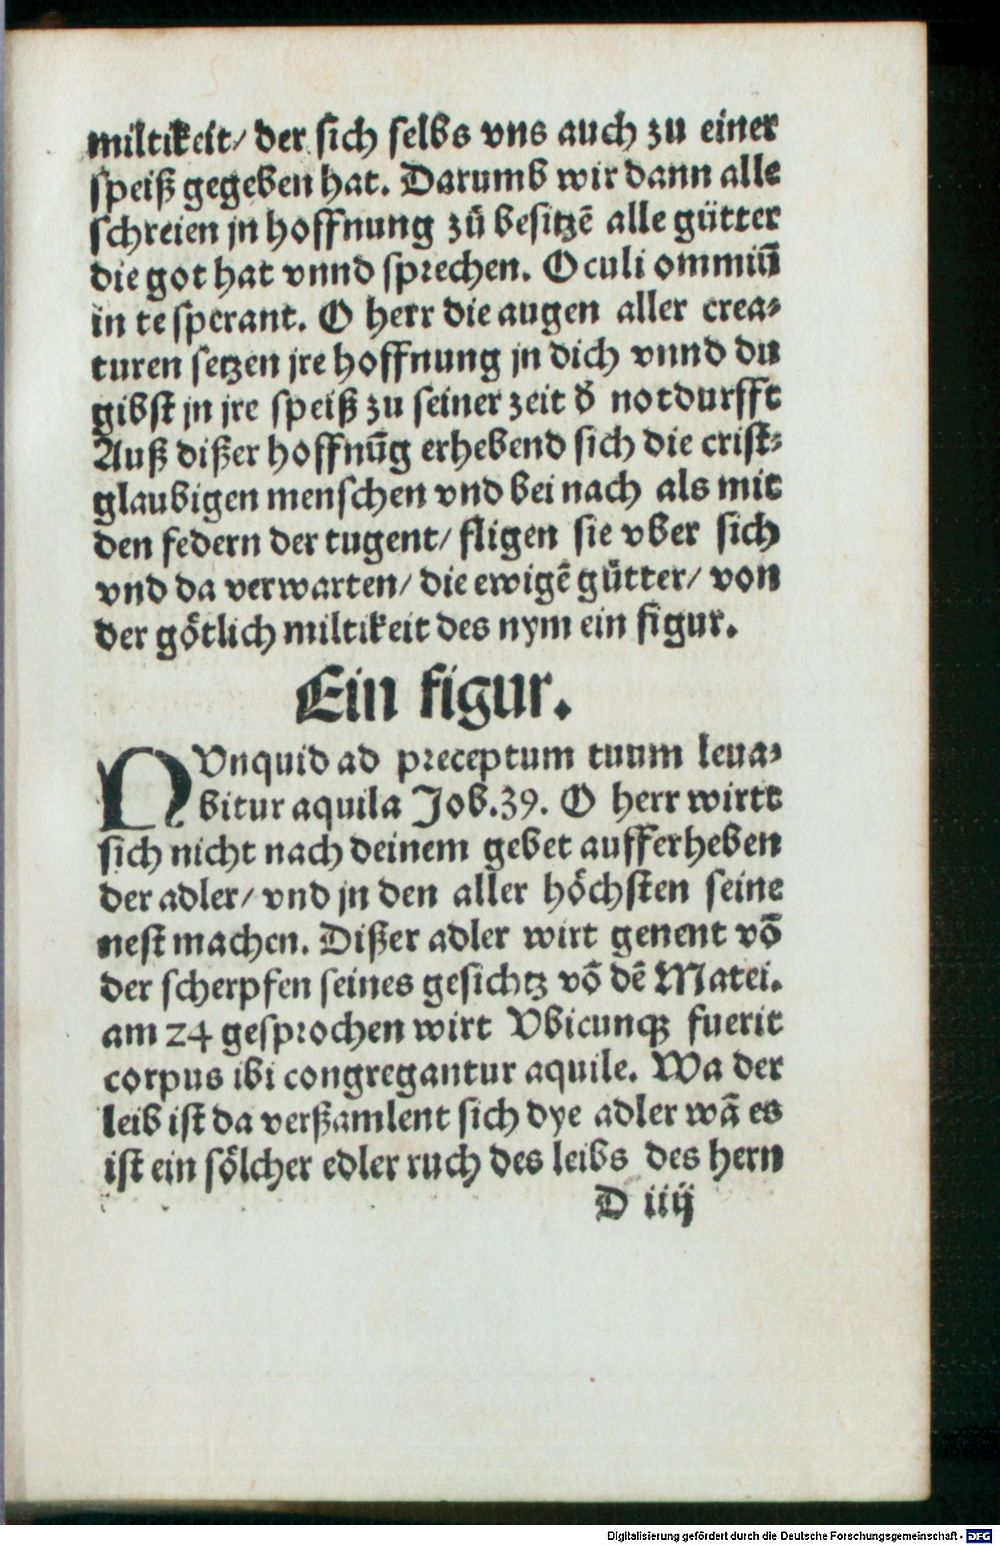 miltikeit/ der sich selbs vns auch zu einer
speiß gegeben hat. Darumb wir dann alle
schreien jn hoffnung zů besitzē alle gütter
die got hat vnnd sprechen. Oculi ommiū
in te sperant. O herr die augen aller crea⸗
turen setzen jre hoffnung jn dich vnnd du
gibst jn jre speiß zu seiner zeit đ notdurfft
Auß dißer hoffnūg erhebend sich die crist⸗
glaubigen menschen vnd bei nach als mit
den federn der tugent/ fligen sie vber sich
vnd da verwarten/ die ewigē gütter/ von
der götlich miltikeit des nym ein figur.
Ein figur.
NVnquid ad preceptum tuum leua⸗
bitur aquila Job.39. O herr wirtt
sich nicht nach deinem gebet aufferheben
der adler/ vnd jn den aller höchsten seine
nest machen. Dißer adler wirt genent vō
der scherpfen seines gesichtz vō dē Matei.
am 24 gesprochen wirt Vbicunqꝫ fuerit
corpus ibi congregantur aquile. Wa der
leib ist da verßamlent sich dye adler wā es
ist ein sölcher edler ruch des leibs des hern
D iiij
Digitalisierung gefördert durch die Deutsche Forschungsgemeinschaft - DFG